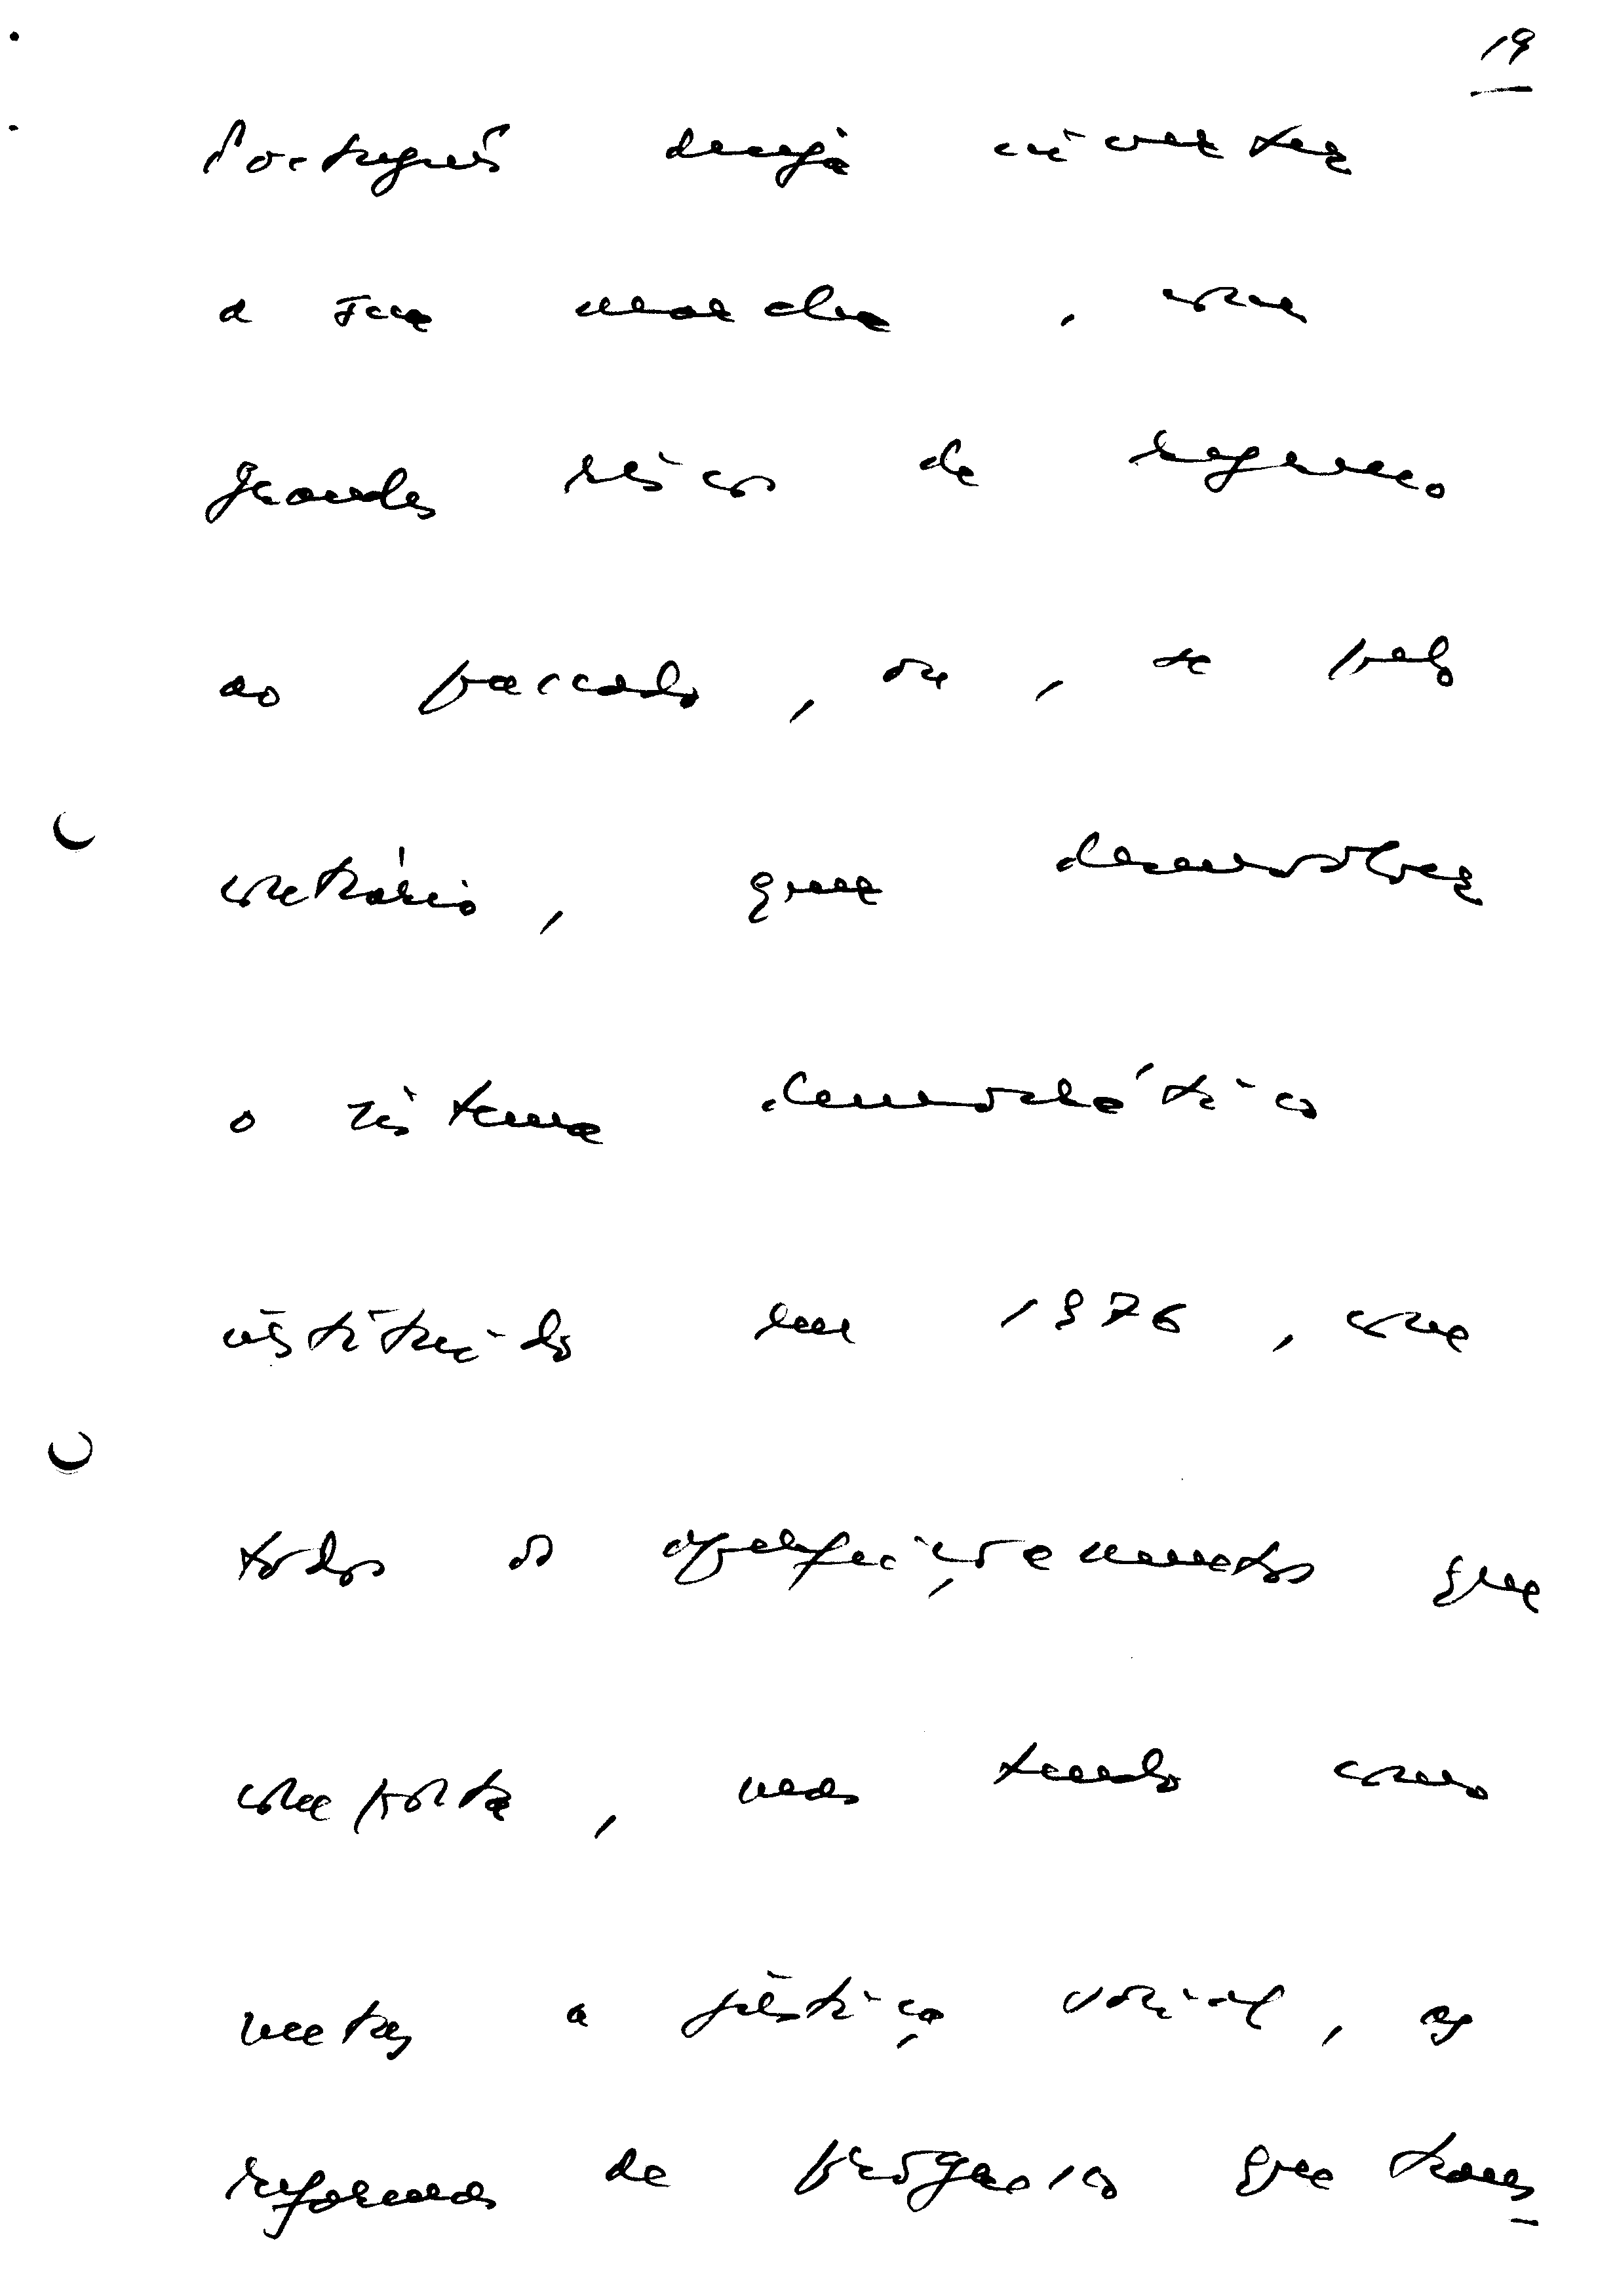 19
Português deseja inverter
a sua marcha, com
grandes riscos de regresso
ao passado, ou, se pelo
contrário, quer desenvolver
o sistema democrático
instituído em 1976, com
todos os aperfeiçoamentos que
comporta, mas tendo como
metas a justiça social, as
reformas de progresso que trans_